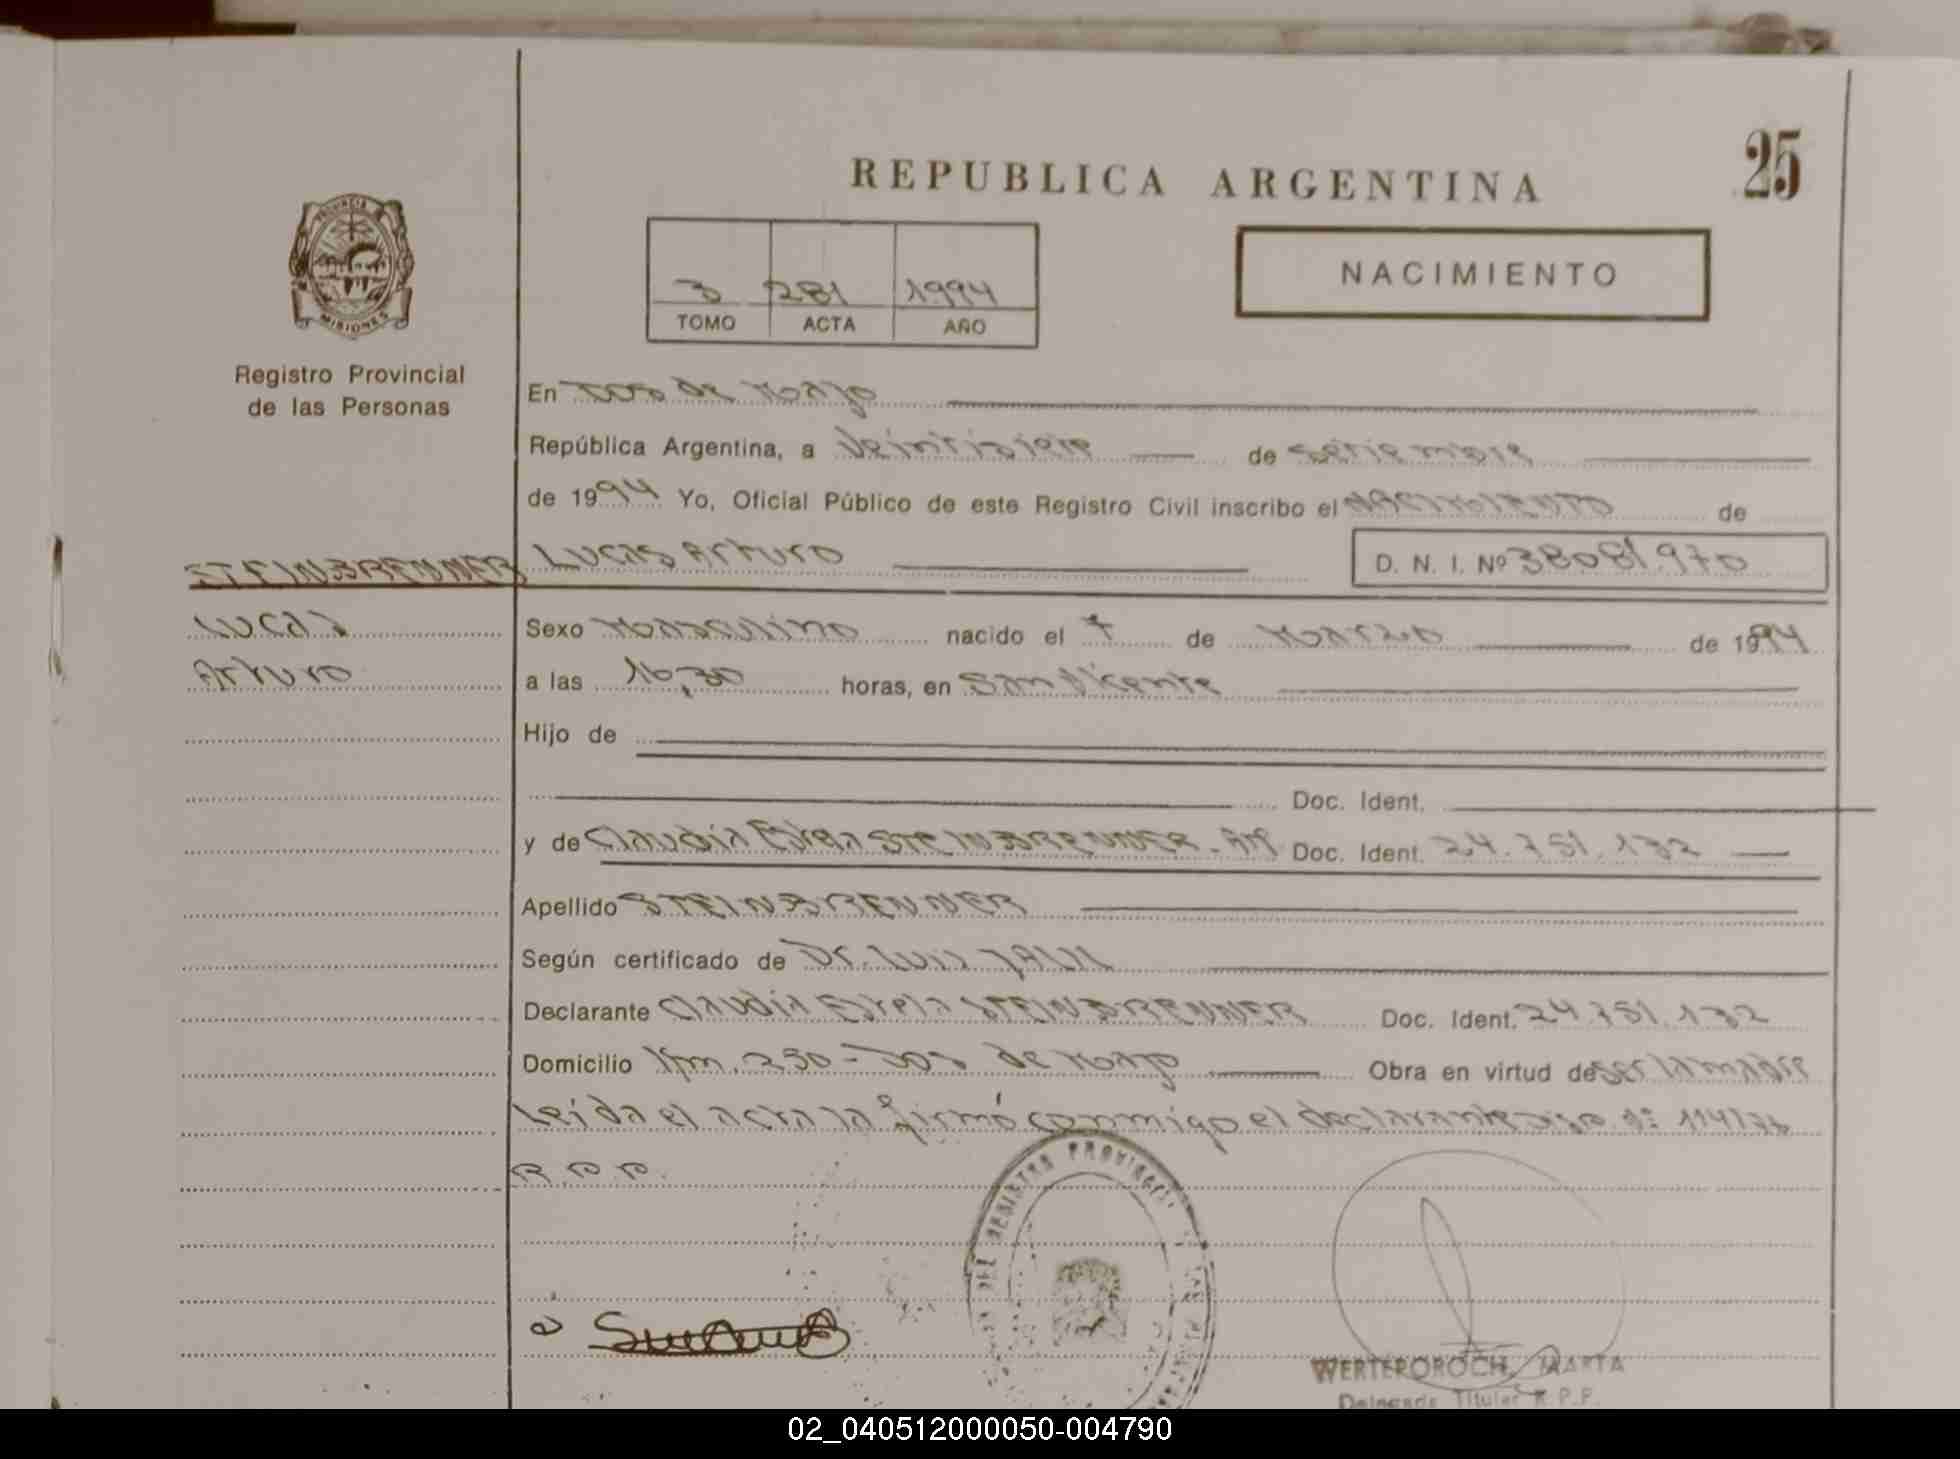 25
REPUBLICA ARGENTINA
PROVINCIA
MISIONES
3 281 1994
TOMO ACTA AÑO
NACIMIENTO
Registro Provincial
de las Personas
En Dos de Mayo
República Argentina, a Veintisiete de Setiembre
de 1994 Yo, Oficial Público de este Registro Civil inscribo el NACIMIENTO de
STEINBRENNER Lucas Arturo D. N. I. Nº 38081.970
Lucas
Arturo
Sexo Masculino nacido el 7 de Marzo de 1994
a las 16,30 horas, en San Vicente
Hijo de
Doc. Ident.
y de Claudia Estela STEINBRENNER - Doc. Ident. 24.751.132
Apellido STEINBRENNER
Según certificado de Dr. Luis
Declarante Claudia Estela STEINBRENNER Doc. Ident. 24.751.132
Domicilio Km. 250 - Dos de Mayo Obra en virtud de ser la madre
Leída el acta la firmó conmigo el declarante Nº 114/76
R.P.P.
DEL REGISTRO PROVINCIAL
WERTEPOROCH, MARTA
Delegada Titular R.P.P.
02_040512000050-004790